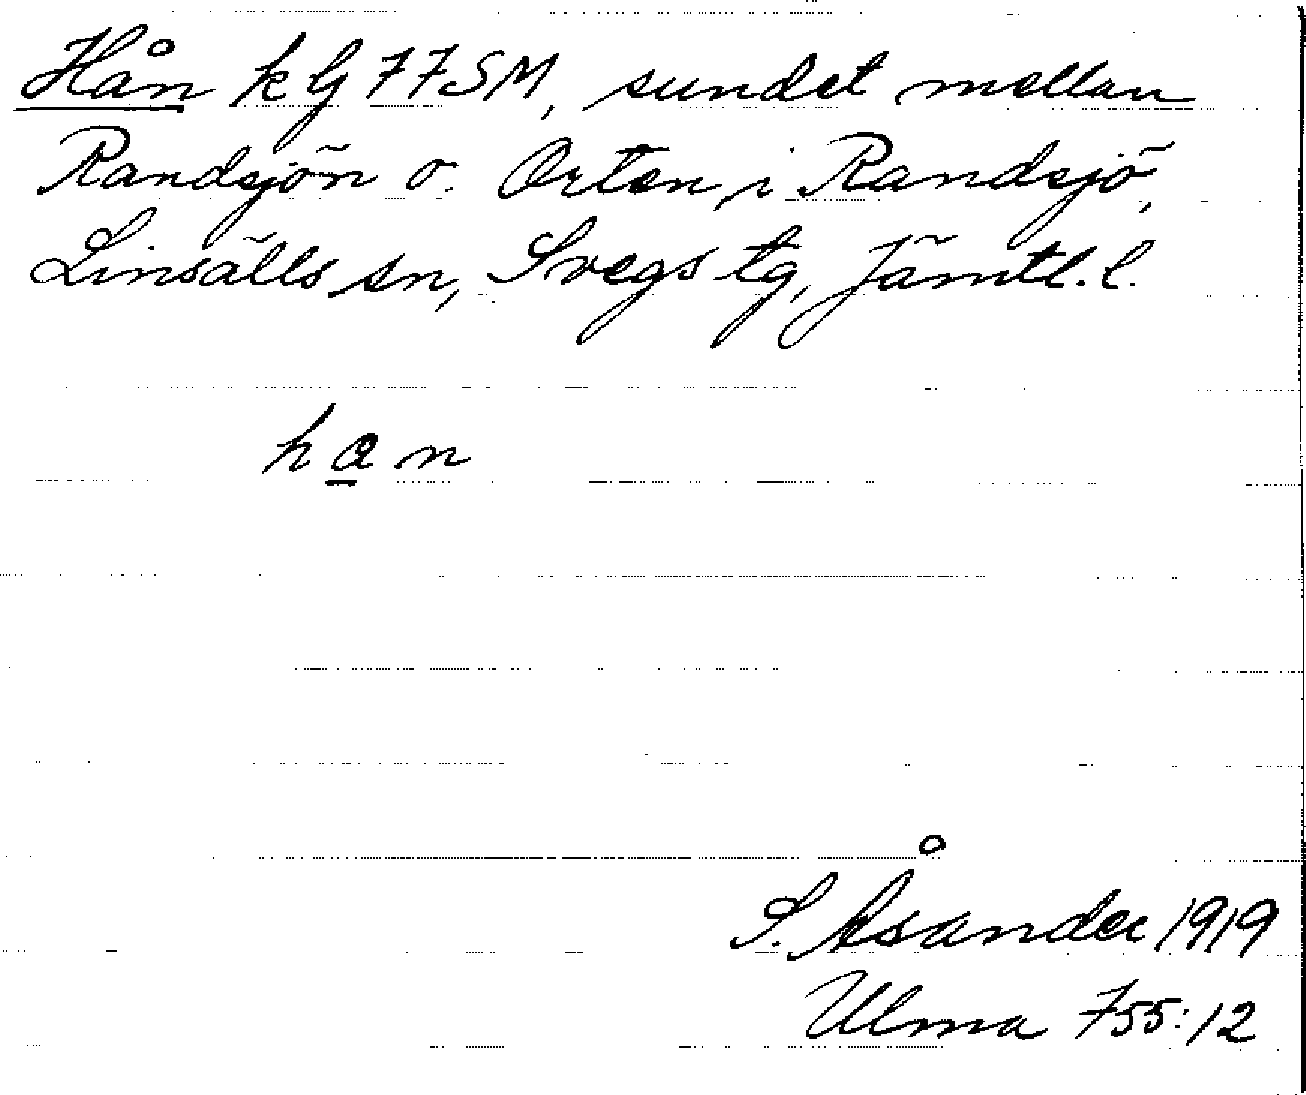 Hån k G 77SM, sundet mellan
Randsjön o. Orten, i Randsjö,
Linsälls sn, Svegs tg, Jämtl. l.
han
S. Åsander 1919
Ulma 755:12